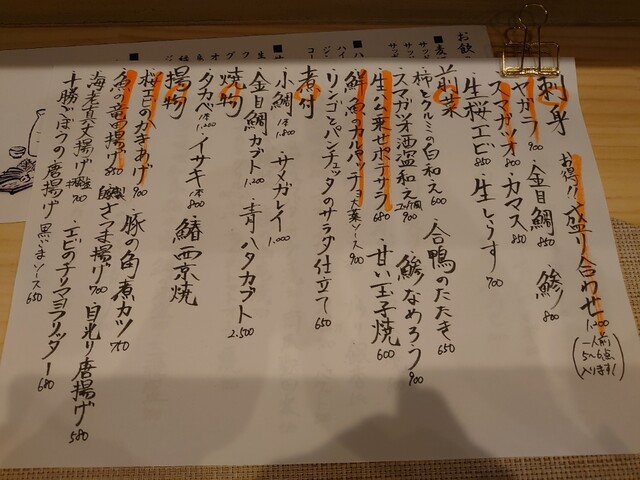 刺身 お得!! 盛り合わせ 1,200
(一人前 5〜6点 入ります!)
ヤガラ 900 ・金目鯛 850 ・鯵 800
スマガツオ 800 ・カマス 850
生桜エビ 850 ・生しらす 700
前菜
・柿とクルミの白和え 600 ・合鴨のたたき 650
・スマガツオ酒盗和え 900 ・鯵なめろう 900
・生ハム乗せポテサラ 680 ・甘い玉子焼 600
・鮮魚のカルパッチョ 900
・リンゴとパンチェッタのサラダ仕立て 650
煮付
・小鯛 1本 1,800 ・サメガレイ 1,000
・金目鯛カブト 1,200 ・青ハタカブト 2,500
焼物
・タカベ 1本 1,200 ・イサキ 1本 800 ・鰆西京焼
揚物
・桜エビのかきあげ 900 ・豚の角煮カツ
・魚の竜田揚げ 850 さつま揚げ 900 ・目光り唐揚げ 580
・海老真丈揚げ 700 ・エビのチリマヨフリッター 680
・十勝ごぼうの唐揚げ 黒ごまソース 650
お飲